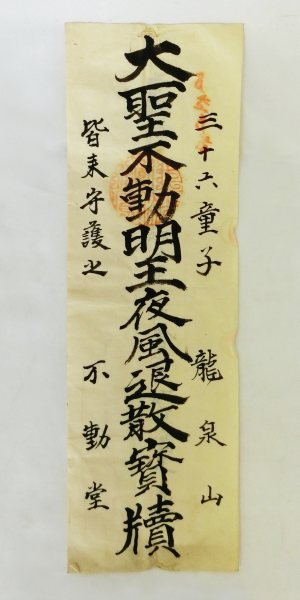 三十六童子　龍泉山
大聖不動明王夜風退散寳牘
皆来守護之　不動堂